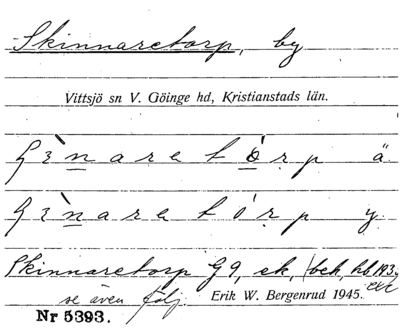 Skinnaretorp, by
Vittsjö sn V. Göinge hd, Kristianstads län.
ʃɜ̀naretȯ́rp ä
ʃɜ̀naretórp y
Skinnaretorp G 9, ek, beh, hb 193
se även följ. Erik W. Bergenrud 1945.
Nr 5393.